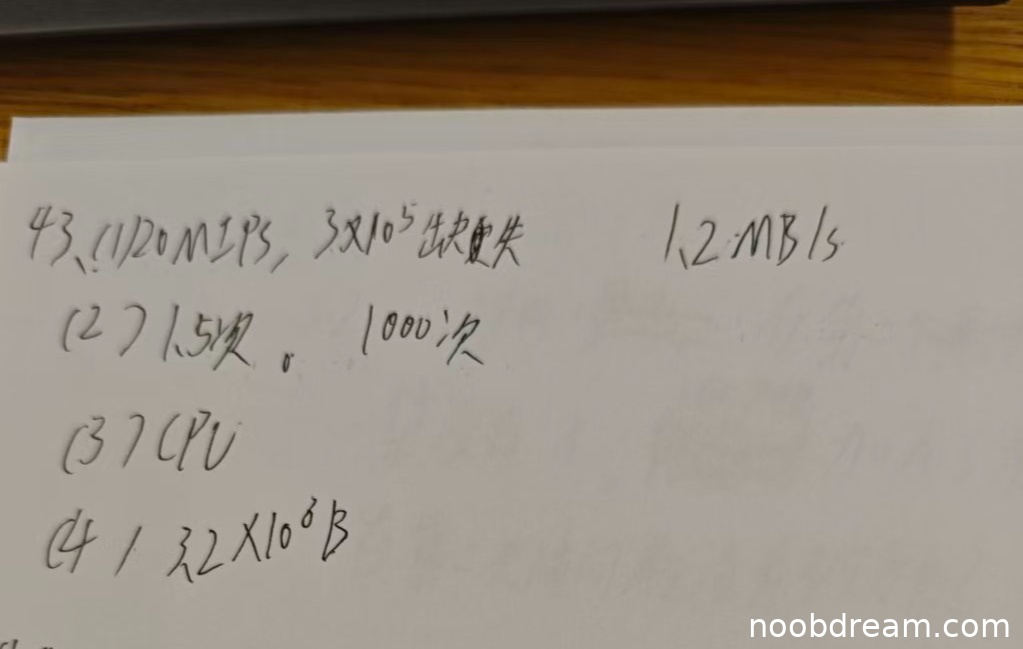 43、(1)20MIPS, 3×10⁵缺失 1.2MB/s
(2) 1.5次。 1000次
(3) CPU
(4) 3.2×10⁸B
noobdream.com